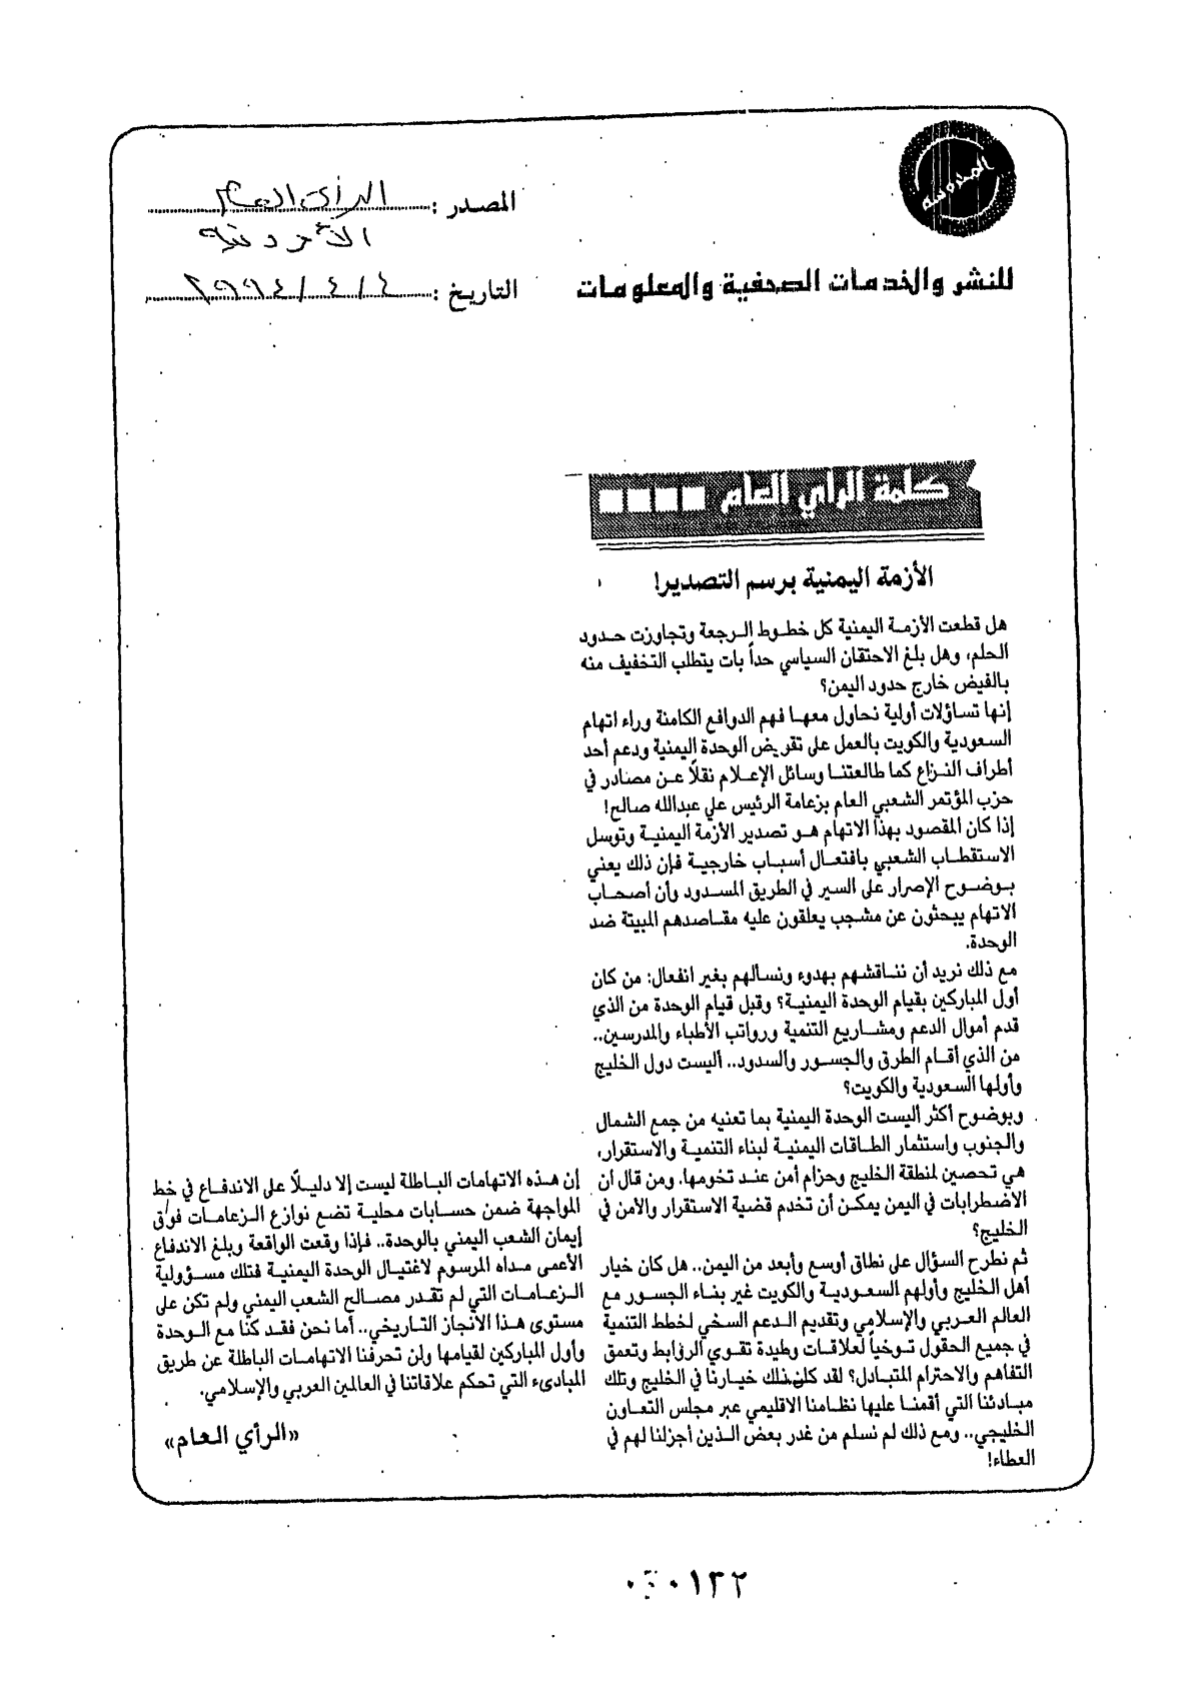 المدوسة
المصدر : الرأي العام
الأردنية
التاريخ : ٤ / ٤ / ١٩٩٤
للنشر والخدمات الصحفية والمعلومات
كلمة الرأي العام
الأزمة اليمنية برسم التصدير!
هل قطعت الأزمـة اليمنية كل خطـوط الـرجعة وتجاوزت حـدود
الحلم، وهل بلغ الاحتقان السياسي حداً بات يتطلب التخفيف منه
بالفيض خارج حدود اليمن؟
إنها تساؤلات أولية نحاول معهـا فهم الدوافع الكامنة وراء اتهام
السعودية والكويت بالعمل على تقريض الوحدة اليمنية ودعم أحد
أطراف النـزاع كما طالعتنـا وسائل الإعـلام نقلاً عـن مصادر في
حزب المؤتمر الشعبي العام بزعامة الرئيس علي عبدالله صالح!
إذا كان المقصود بهذا الاتهام هـو تصدير الأزمة اليمنيـة وتوسل
الاستقطـاب الشعبي بافتعـال أسبـاب خارجيـة فإن ذلك يعني
بـوضـوح الإصرار على السير في الطريق المسـدود وأن أصحـاب
الاتهام يبحثون عن مشـجب يعلقون عليه مقـاصدهم المبيتة ضد
الوحدة.
مع ذلك نريد أن ننـاقشهم بهدوء ونسألهم بغير انفعال: من كان
أول المباركين بقيام الوحدة اليمنيـة؟ وقبل قيام الوحدة من الذي
قدم أموال الدعم ومشـاريع التنمية ورواتب الأطباء والمدرسين..
من الذي أقـام الطرق والجسـور والسدود.. أليست دول الخليج
وأولها السعودية والكويت؟
وبوضوح أكثر أليست الوحدة اليمنية بما تعنيه من جمع الشمال
والجنوب واستثمار الطـاقات اليمنية لبناء التنميـة والاستقرار،
هي تـحصين لمنطقة الخليج وحزام أمن عنـد تخومها. ومن قال أن
الاضطرابات في اليمن يمكـن أن تخدم قضية الاستقرار والأمن في
الخليج؟
ثم نطرح السؤال على نطاق أوسع وأبعد من اليمن.. هل كان خيار
أهل الخليج وأولهم السعوديـة والكويت غير بناء الجسـور مع
العالم العربي والإسلامي وتقديم الـدعم السخي لخطط التنمية
في جميع الحقول تـوخياً لعلاقات وطيدة تقوي الروابط وتعمق
التفاهم والاحترام المتبـادل؟ لقد كان ذلك خيارنا في الخليج وتلك
مبـادئنا التي أقمنـا عليها نظـامنا الاقليمي عبر مجلس التعـاون
الخليجي.. ومع ذلك لم نسلم من غدر بعض الـذين أجزلنا لهم في
العطاء!
إن هـذه الاتهامات البـاطلة ليست إلا دليـلاً على الاندفـاع في خط
المواجهة ضمن حسـابات محليـة تضع نوازع الـزعامـات فوق
إيمان الشعب اليمني بالوحدة.. فـإذا وقعت الواقعة وبلغ الاندفاع
الأعمى مـداه المرسوم لاغتيـال الوحدة اليمنيـة فتلك مسـؤولية
الـزعامـات التي لم تقـدر مصـالح الشعب اليمني ولم تكن على
مستوى هـذا الأنجاز التـاريخي.. أمـا نحن فقـد كنا مع الـوحدة
وأول المباركين لقيامها ولن تحرفنا الاتهامـات الباطلة عن طريق
المبادىء التي تحكم علاقاتنا في العالمين العربي والإسلامي.
«الرأي العام»